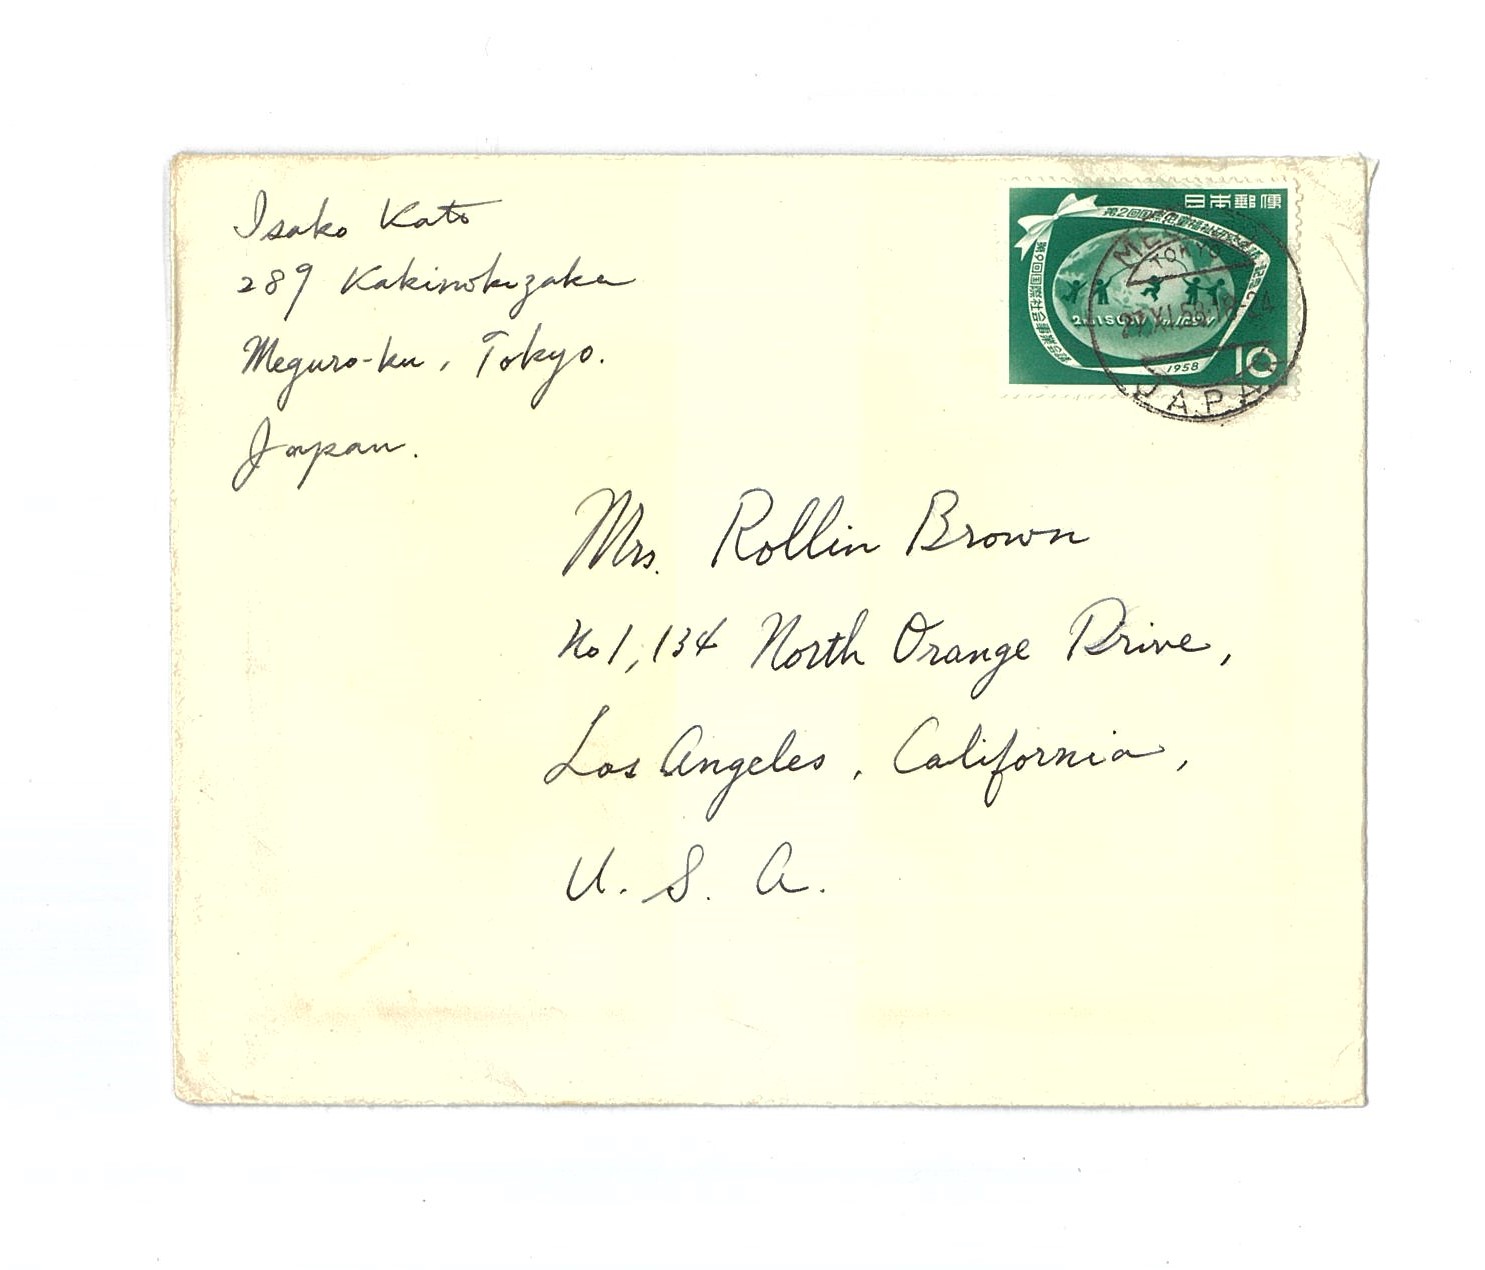 Isako Kato
289 Kakinokizaka
Meguro-ku, Tokyo.
Japan.
日本郵便
第2回国際児童福祉研究会議
第9回国際社会事業会議
1958
10
TOKYO
27.XI.58
JAPAN
Mrs. Rollin Brown
No 1, 134 North Orange Drive,
Los Angeles, California,
U. S. A.